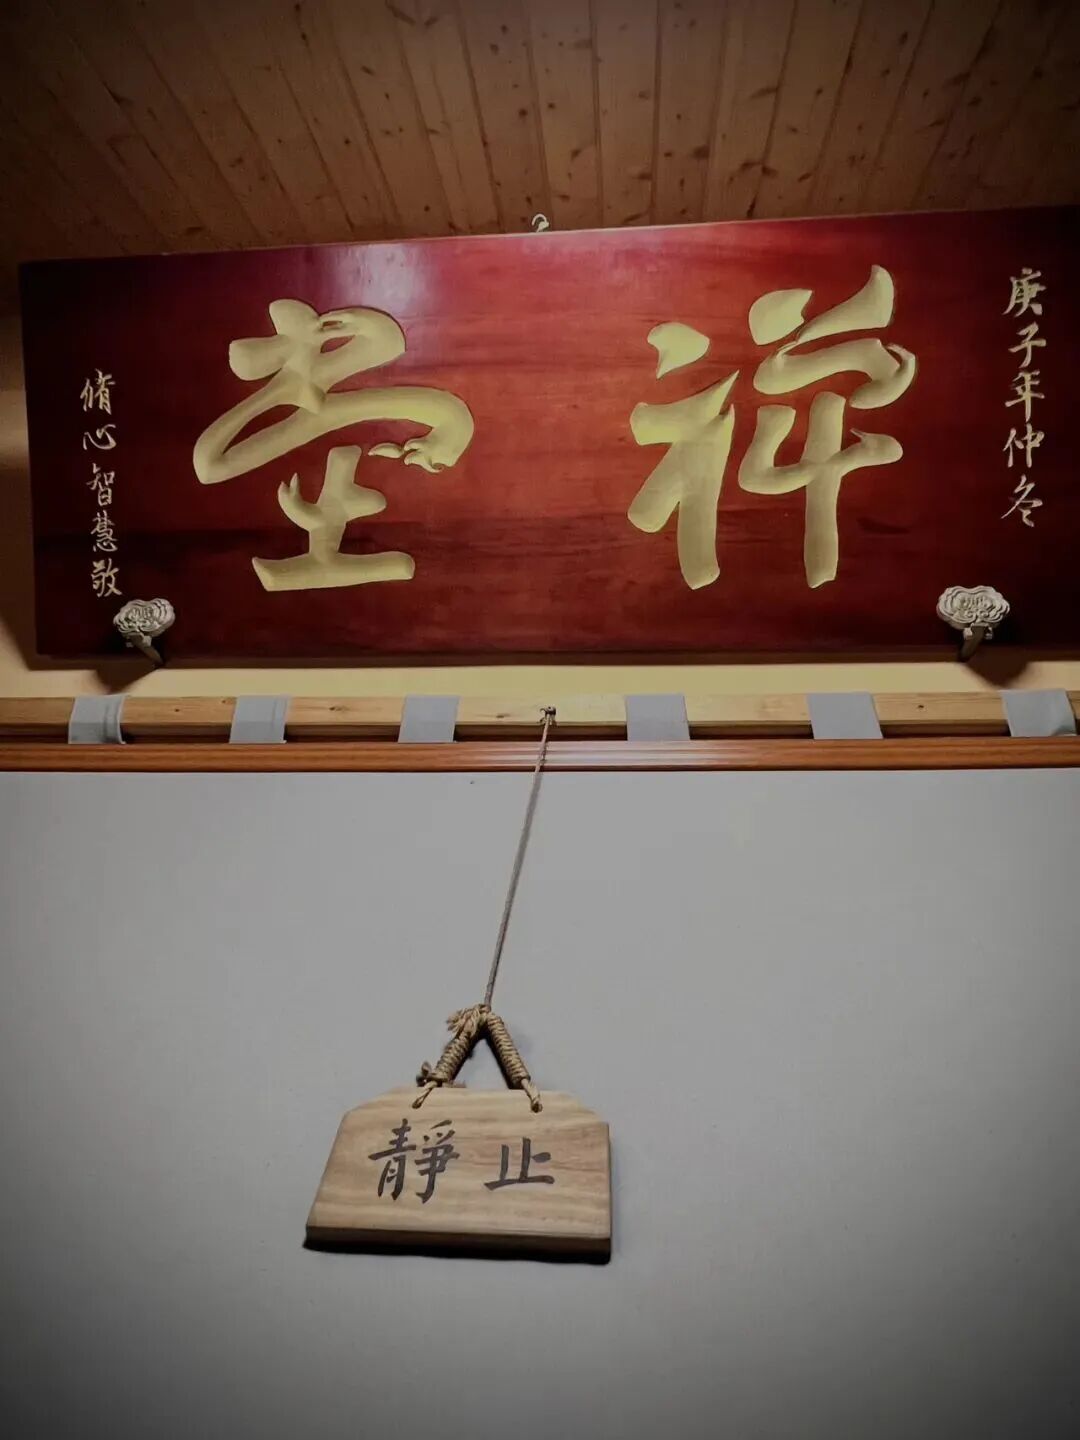 庚子年仲冬
禪堂
脩心智慧敬
止靜